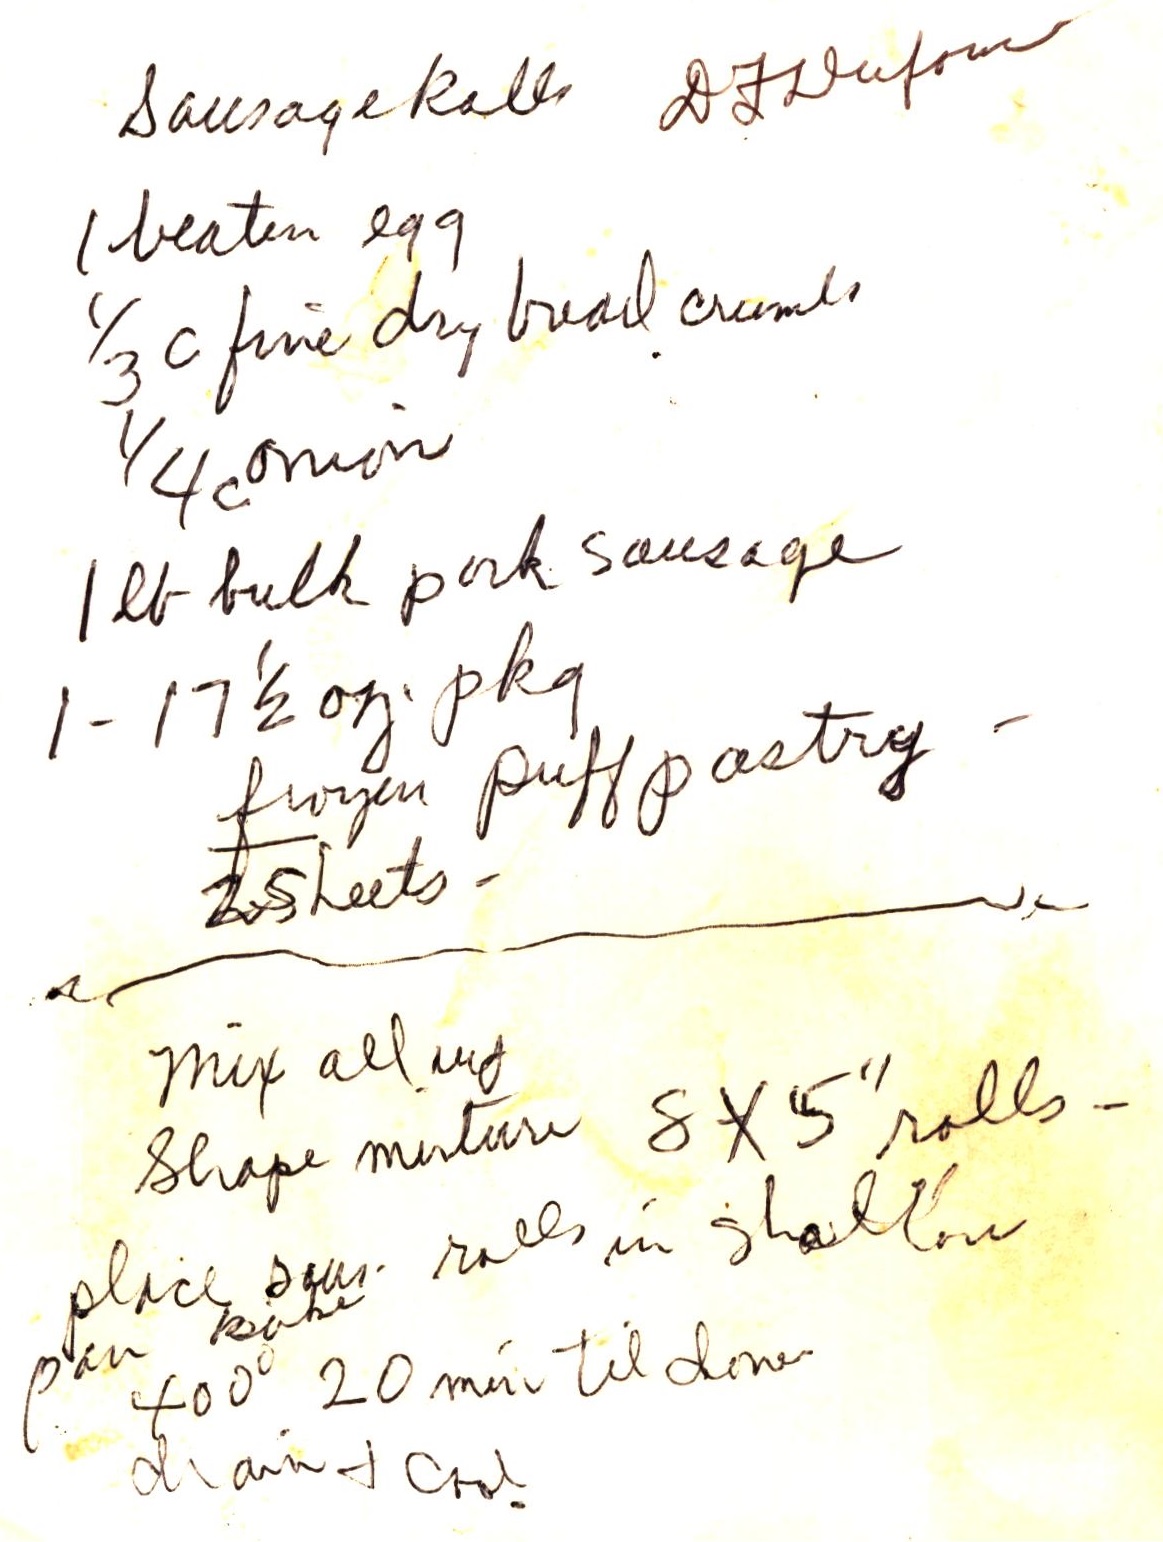 Sausage Rolls D F Dufour
1 beaten egg
1/3 c fine dry bread crumbs
1/4 c onion
1 lb bulk pork sausage
1 - 17 1/2 oz. pkg
frozen puff pastry -
2 sheets -
Mix all
Shape mixture 8 X 5" rolls -
place saus. rolls in shallow
pan bake
400° 20 min til done
drain + cool.